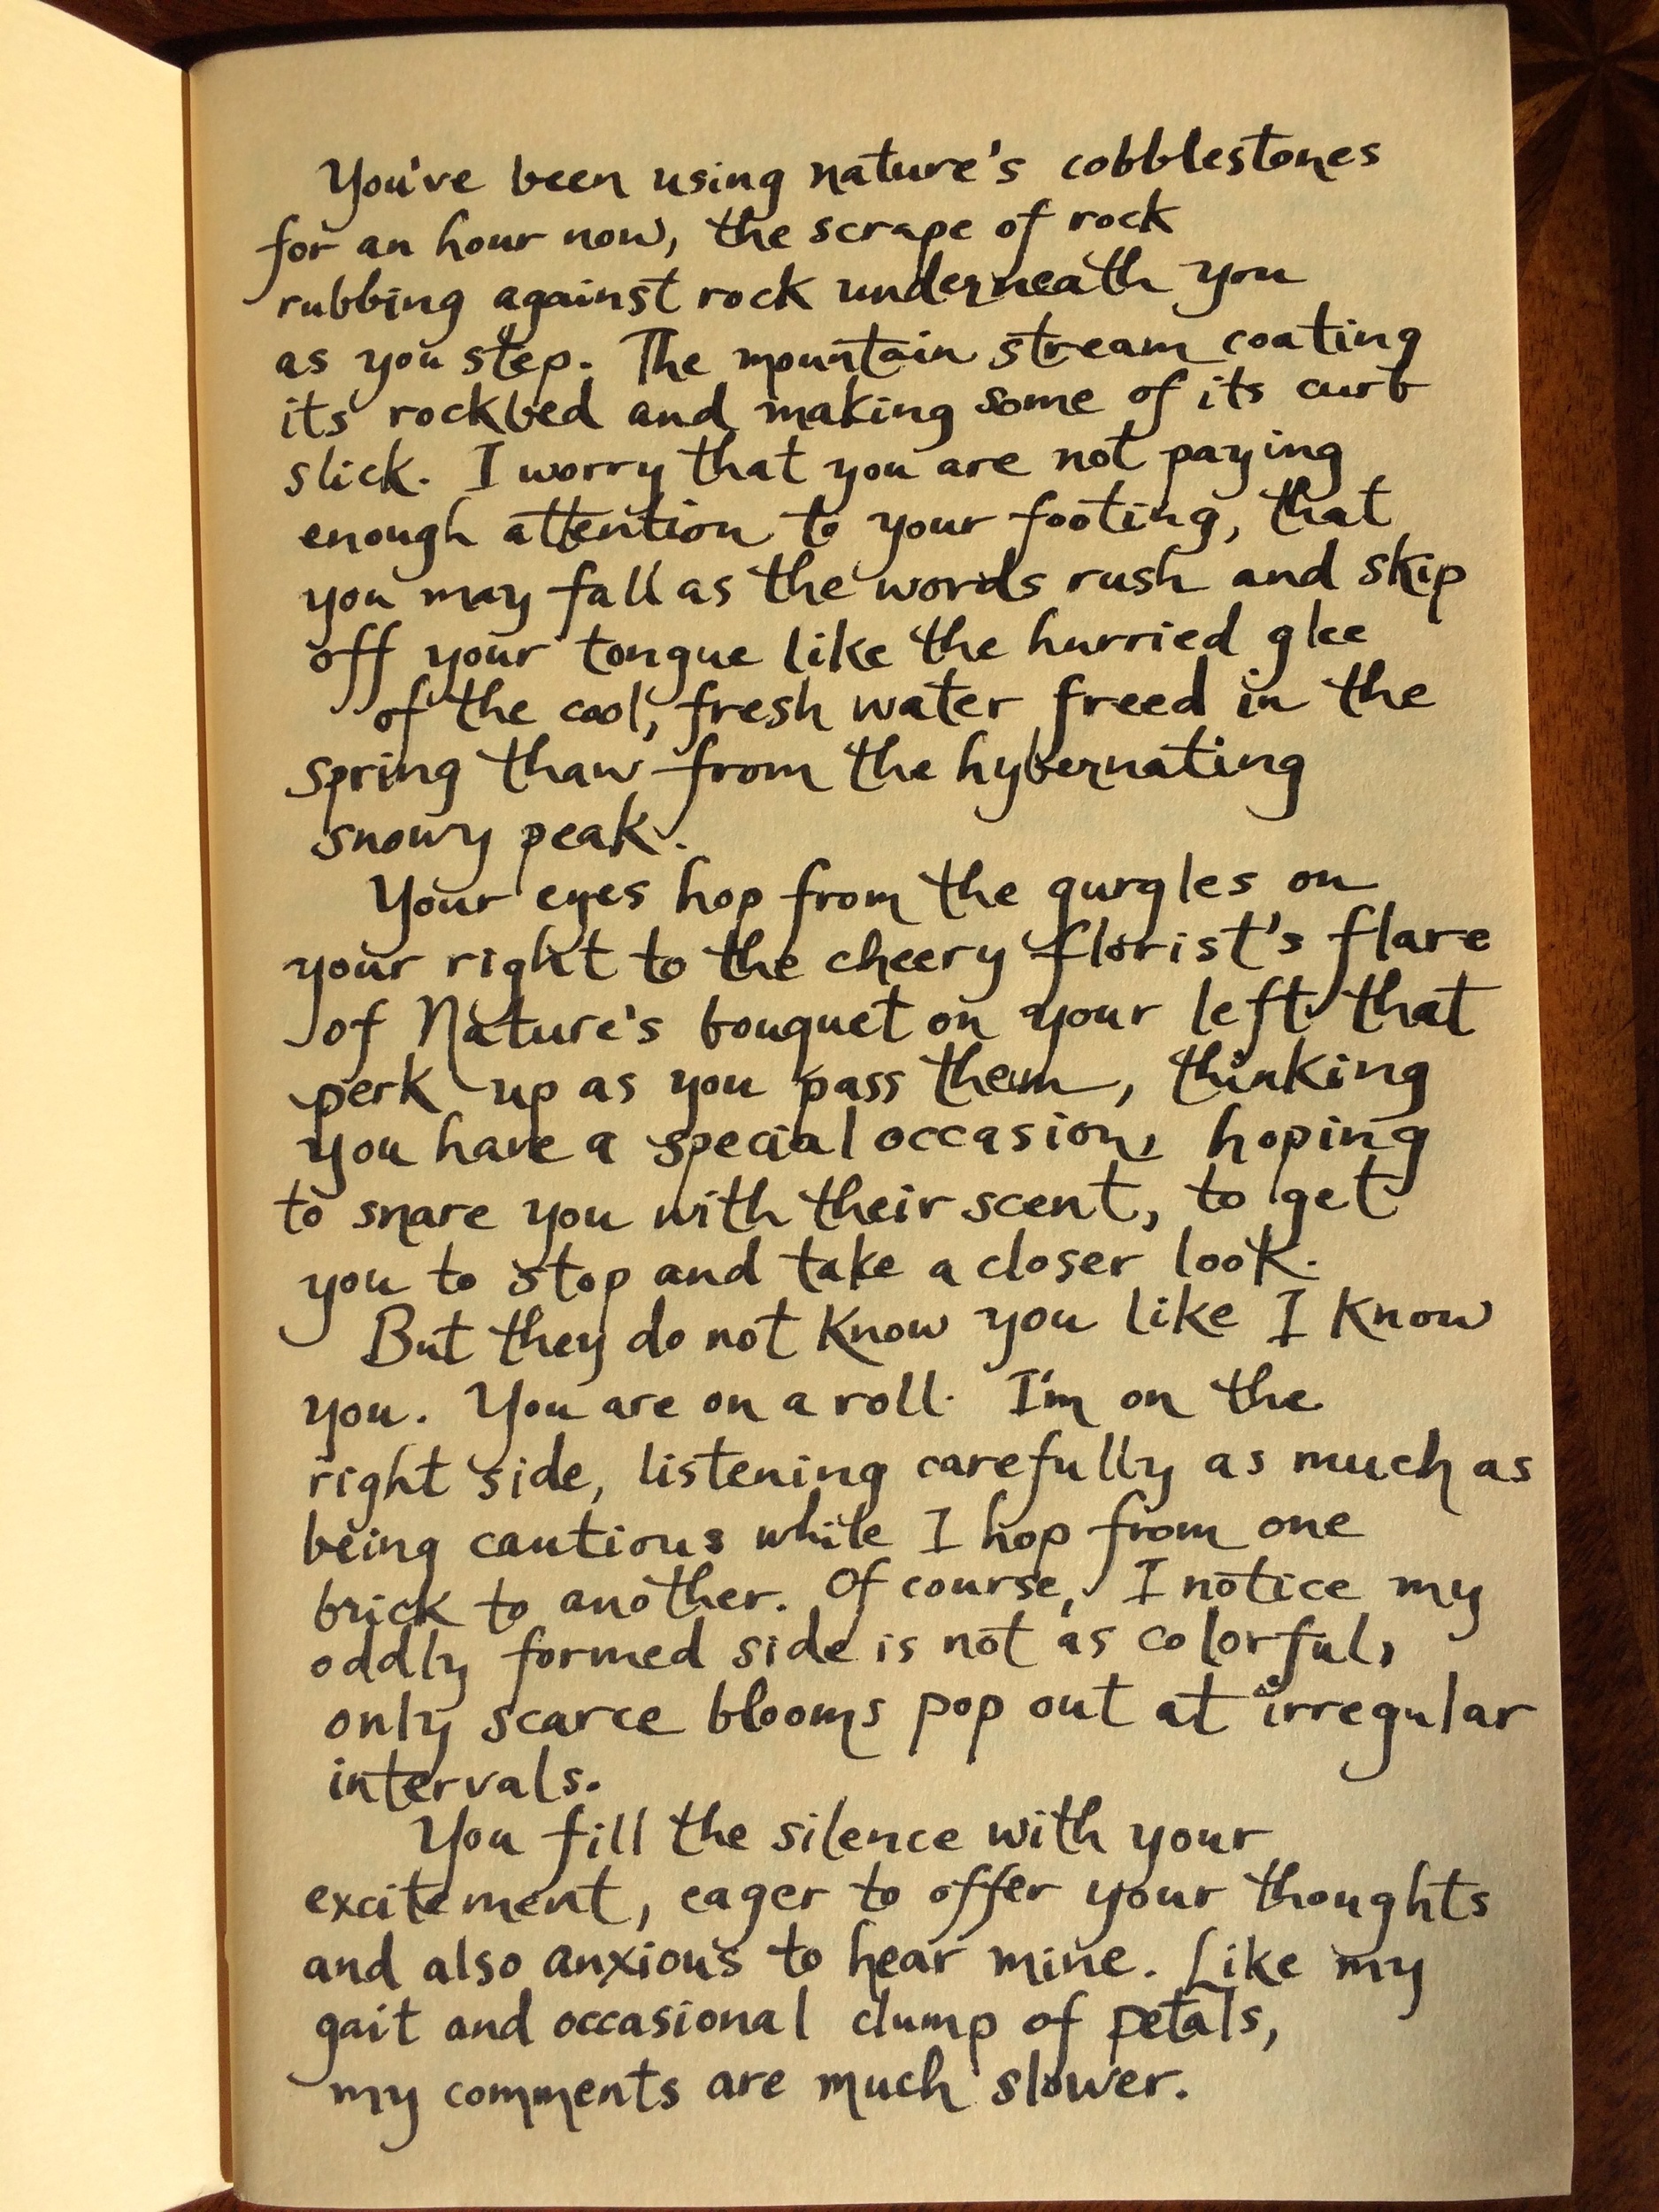 You've been using nature's cobblestones
for an hour now, the scrape of rock
rubbing against rock underneath you
as you step. The mountain stream coating
its rockbed and making some of its curb
slick. I worry that you are not paying
enough attention to your footing, that
you may fall as the words rush and skip
off your tongue like the hurried glee
of the cool, fresh water freed in the
spring thaw from the hybernating
snowy peak.
Your eyes hop from the gurgles on
your right to the cheery florist's flare
of Nature's bouquet on your left that
perk up as you pass them, thinking
you have a special occasion, hoping
to snare you with their scent, to get
you to stop and take a closer look.
But they do not know you like I know
you. You are on a roll. I'm on the
right side, listening carefully as much as
being cautious while I hop from one
brick to another. Of course, I notice my
oddly formed side is not as colorful,
only scarce blooms pop out at irregular
intervals.
You fill the silence with your
excitement, eager to offer your thoughts
and also anxious to hear mine. Like my
gait and occasional clump of petals,
my comments are much slower.